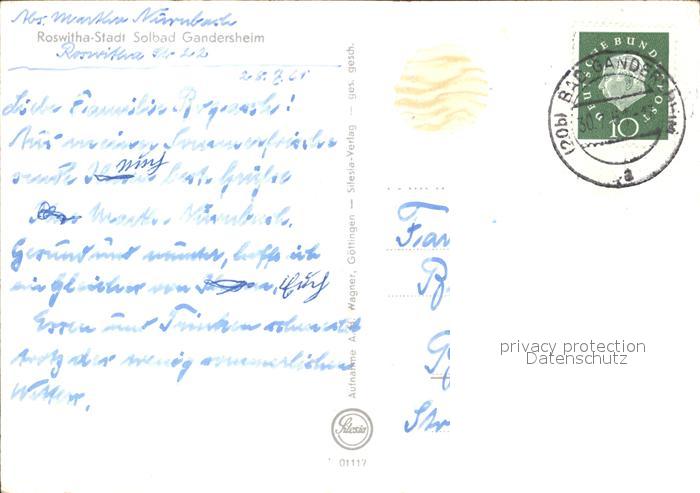 Abs. Martha Nürnbach
Roswitha-Stadt Solbad Gandersheim
Roswitha Str 22
28.7.61
Liebe Familie
Aus meiner Sommerfrische
sende Euch best. Grüße
Marth. Nürnbach.
Gesund und munter, hoffe ich
ein Gleiches von Euch
Essen und Trinken schmeckt
trotz der wenig sommerlichen
Wetter.
Aufnahme Wagner, Göttingen — Silesia-Verlag — ges. gesch.
Silesia
01117
DEUTSCHE BUNDESPOST
10
(20b) BAD GANDERSHEIM
a
Fam
B
Str
privacy protection
Datenschutz